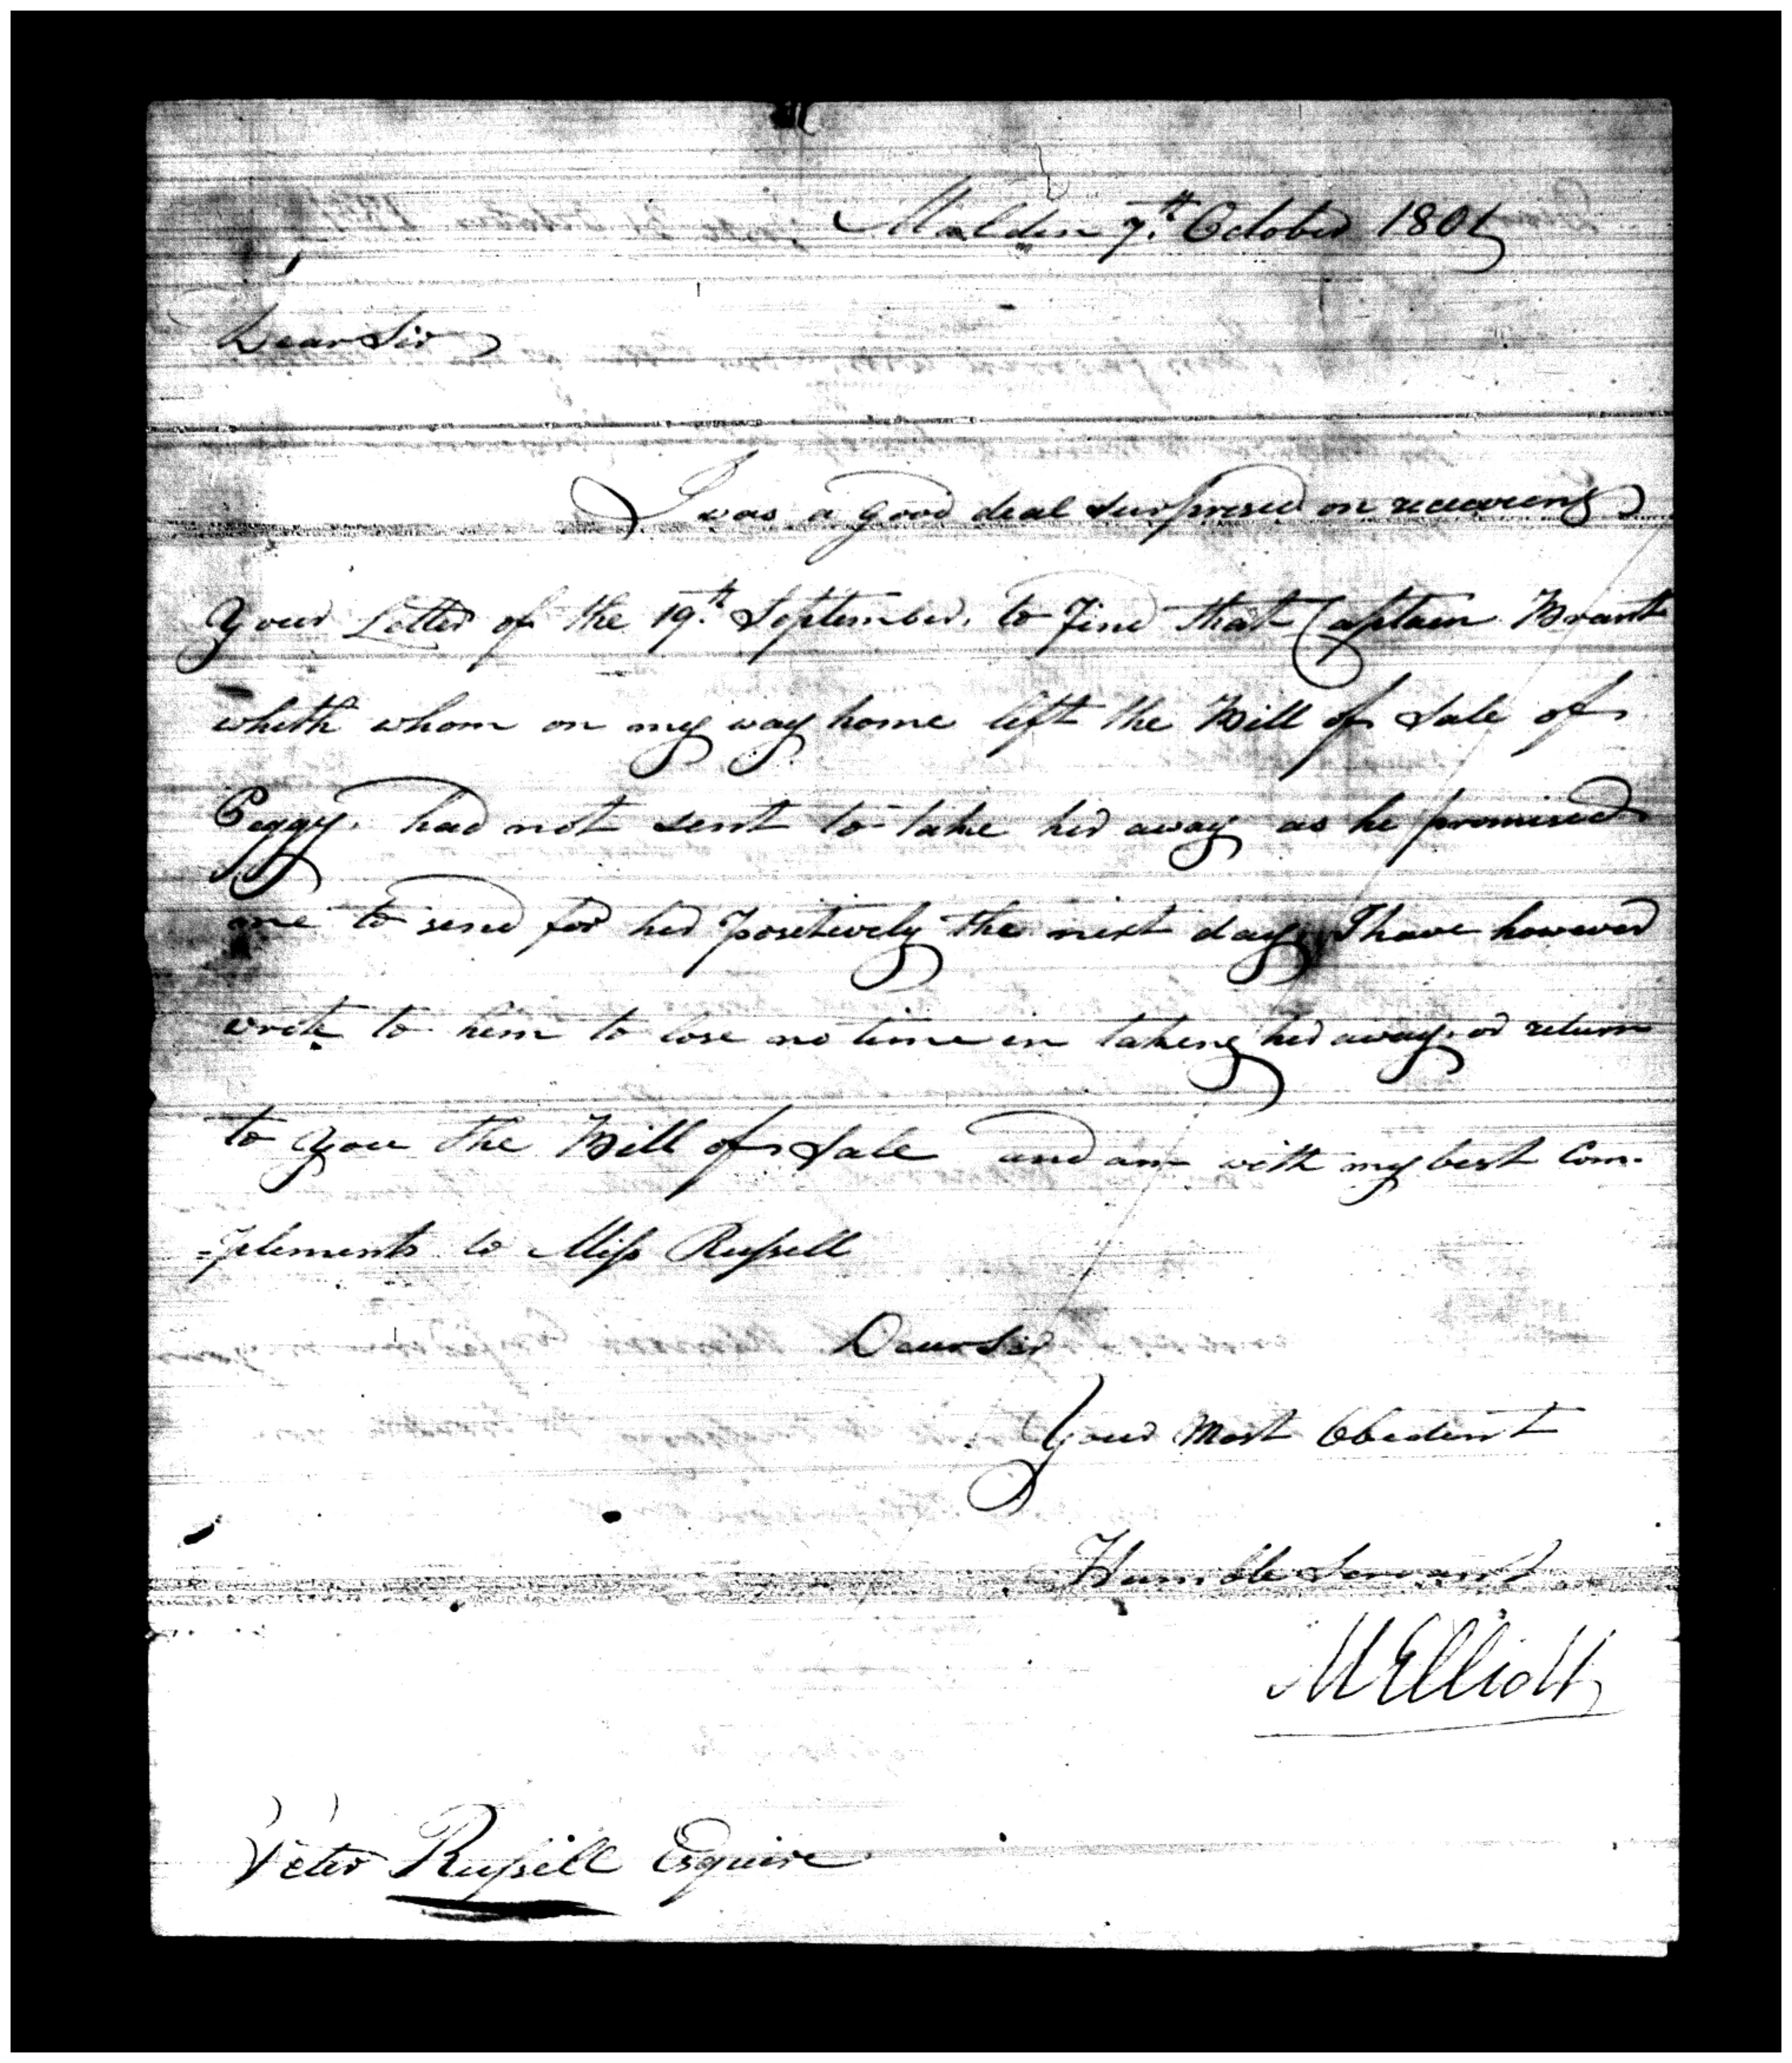 Malden 7th October 1801
Dear Sir
I was a good deal surprised on receiveing
Your Letter of the 19th September, to find that Captain Brant
wheth whom on my way home left the Bill of Sale of
Peggy, had not sent to take her away as he promised
me to send for her positively the next day, I have however
wrote to him to lose no time in takeing her away, or return
to you the Bill of Sale and am with my best Com-
=pliments to Miss Russell
Dear Sir
Your Most Obedient
Humble Servant
M Elliott
Peter Russell Esquire